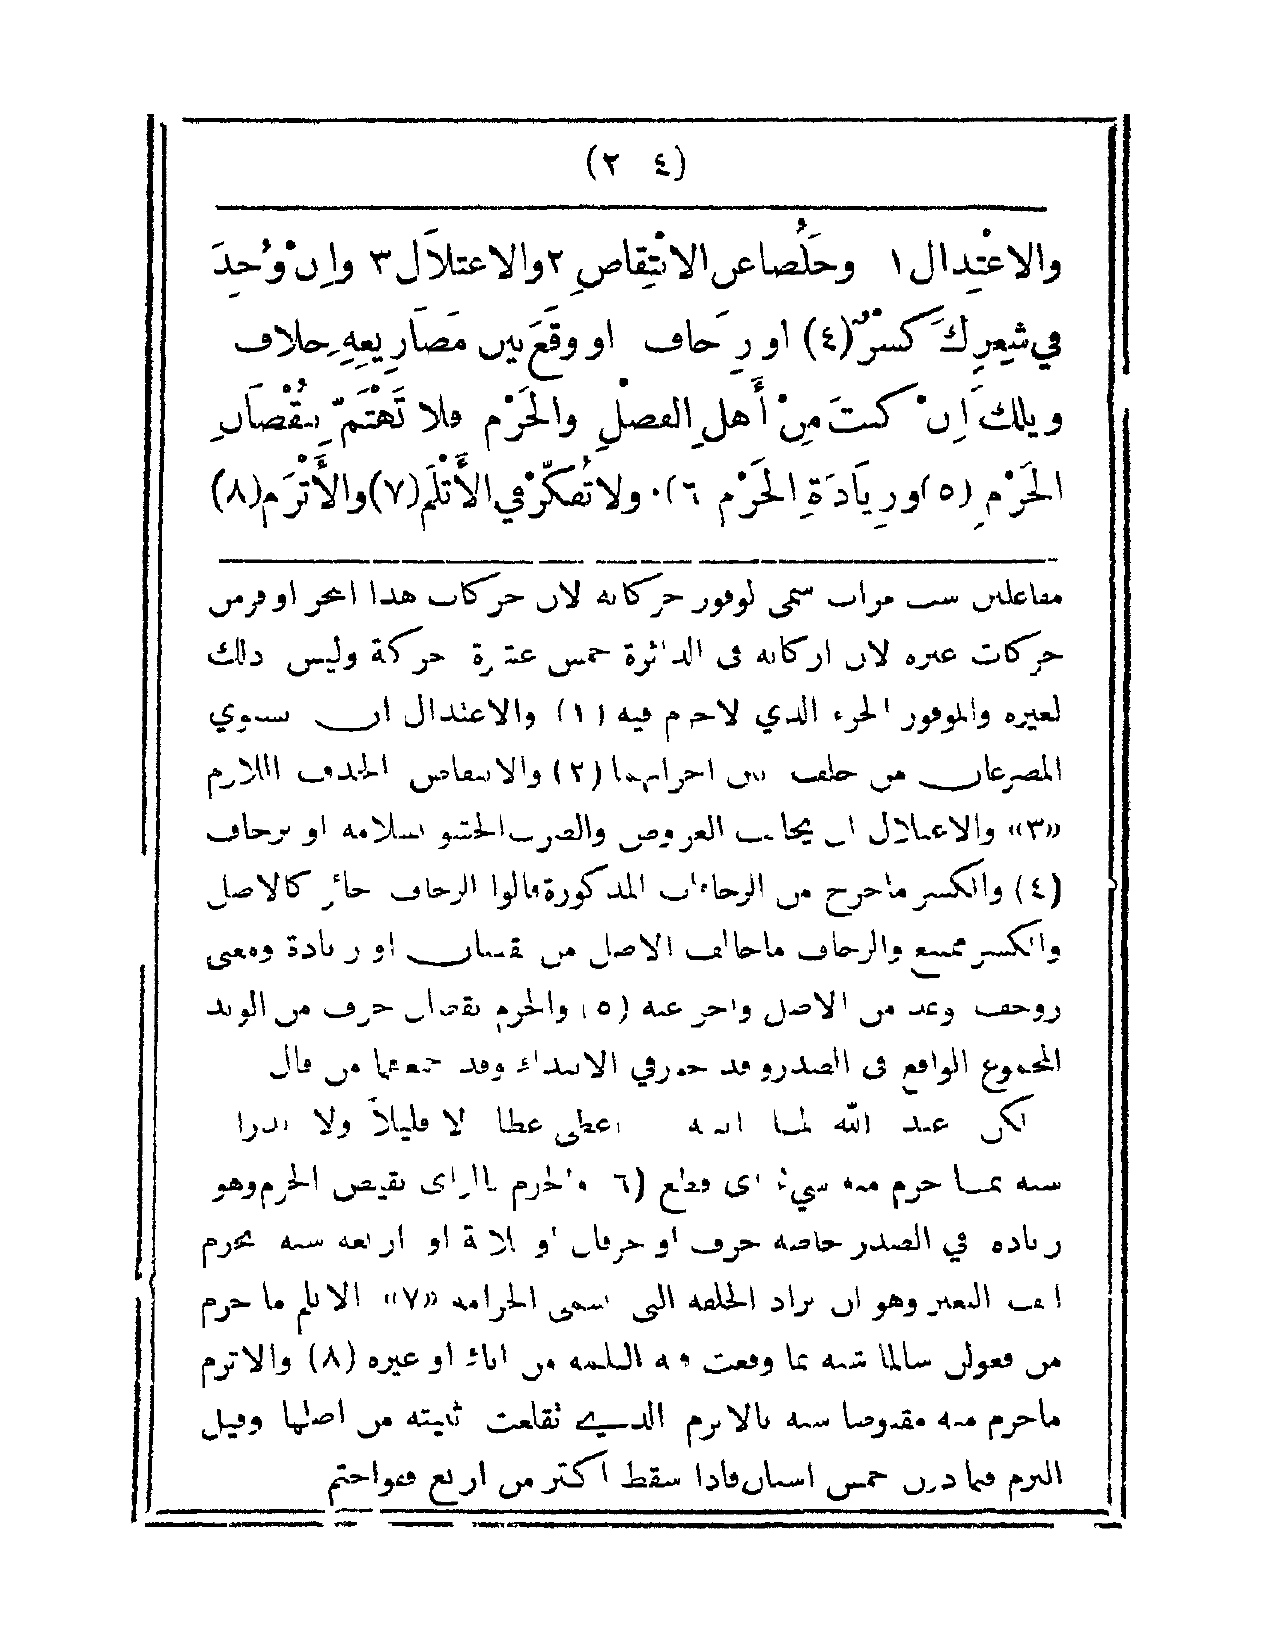 (٢ ٤)
والاعْتِدال ١ وخَلُصا عن الانْتِقاصِ ٢ والاعتلَال ٣ وإن وُجِدَ
في شِعرِكَ كَسرٌ (٤) او زِحاف او وقَع بين مَصارِيعِهِ خلاف
ويلك إنْ كنتَ مِنْ أَهلِ الفضلِ والحَزْم فلا تَهْتَمّ بِنُقْصانِ
الخَرْمِ (٥) وزِيادَةِ الخَزْم ٦). ولا تُفكّرْ في الأَثْلَمِ (٧) والأَثْرَم (٨)
مفاعلتن ست مرات سمى لوفور حركاته لان حركات هذا البحر اوفر من
حركات غيره لان اركانه فى الدائرة خمس عشرة حركة وليس ذلك
لغيره والموفور الجزء الذي لا خرم فيه (١) والاعتدال ان يستوي
المصرعان من حيث اجزائهما (٢) والانتقاص الحذف اللازم
«٣» والاعتلال ان يجانب العروض والضرب الحشو بسلامة او بزحاف
(٤) والكسر ما خرج من الزحافات المذكورة قالوا الزحاف جائز كالاصل
والكسر ممتنع والزحاف ما خالف الاصل من نقصان او زيادة ومعنى
زوحف وعد من الاصل واخر عنه (٥) والخرم نقصان حرف من الوتد
المجموع الواقع فى الصدر وقد جوز في الابتداء وقد جمعهما من قال
لكن عبد الله لما اتيته اعطى عطا لا قليلاً ولا نزرا
سنه مما خرم منه شيء اى قطع (٦ والخزم بالزاى نقيض الخرم وهو
زياده في الصدر خاصه حرف او حرفان او ثلاثة او اربعه سنه بخزم
انف البعير وهو ان يزاد الحلقه التى تسمى الخزامه «٧» الاثلم ما خرم
من فعولن سالما شبه بما وقعت فيه الثلمه من اناء او غيره (٨) والاثرم
ماخرم منه مقبوضا شبه بالاثرم الذي انقلعت ثنيته من اصلها وقيل
الثرم فيما دون خمس اسنان فاذا سقط اكثر من اربع فهو اختم